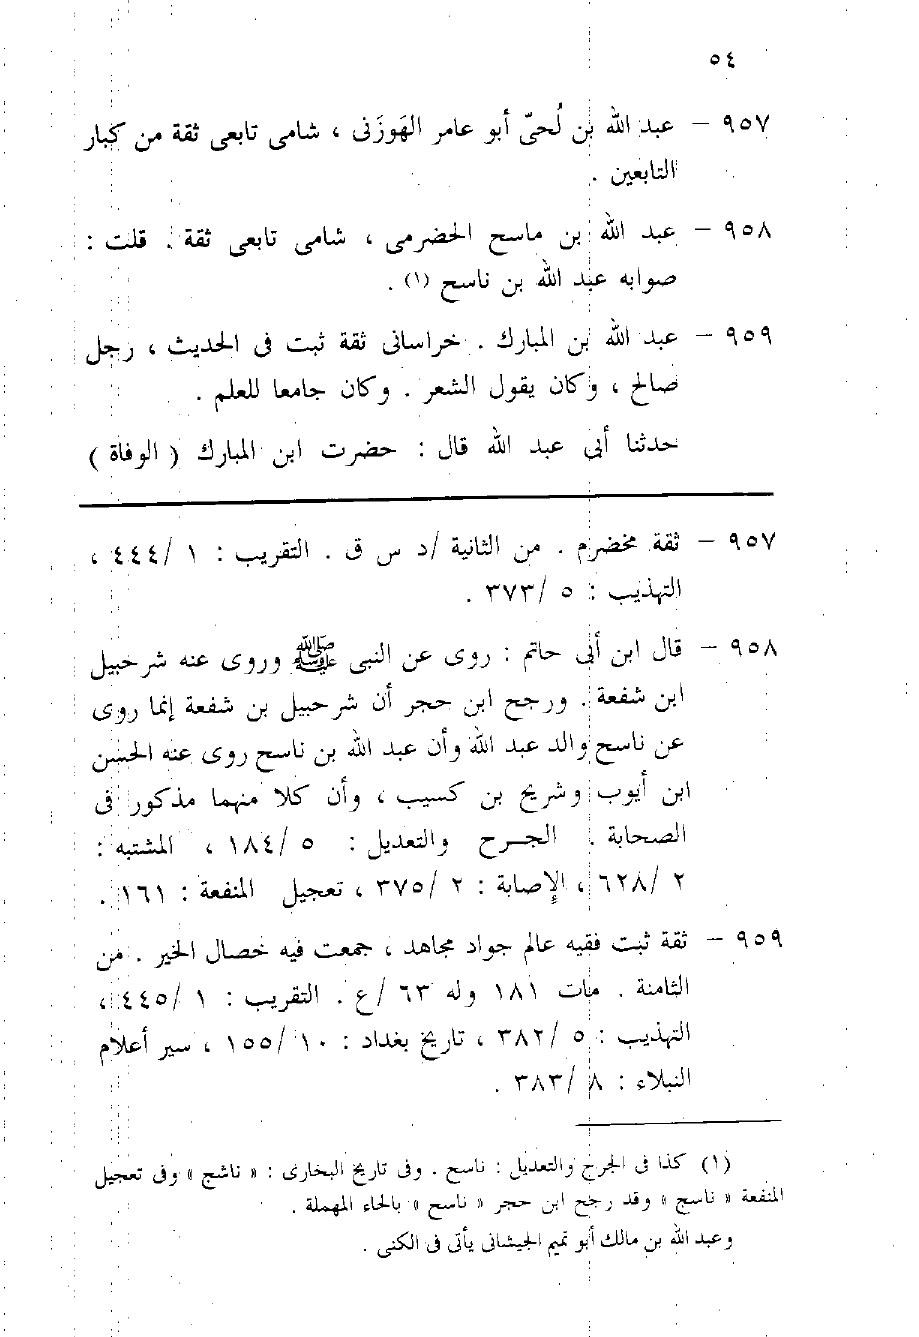 ٥٤
٩٥٧ – عبد الله بن لُحىّ أبو عامر الهَوزَنى ، شامى تابعى ثقة من كبار
التابعين .
٩٥٨ – عبد الله بن ماسح الحضرمى ، شامى تابعى ثقة . قلت :
صوابه عبد الله بن ناسح (١) .
٩٥٩ – عبد الله بن المبارك . خراسانى ثقة ثبت فى الحديث ، رجل
صالح ، وكان يقول الشعر . وكان جامعا للعلم .
حدثنا أبى عبد الله قال : حضرت ابن المبارك ( الوفاة )
٩٥٧ – ثقة مخضرم . من الثانية /د س ق . التقريب : ١ /٤٤٤ ،
التهذيب : ٥ /٣٧٣ .
٩٥٨ – قال ابن أبى حاتم : روى عن النبى ﷺ وروى عنه شرحبيل
ابن شفعة . ورجح ابن حجر أن شرحبيل بن شفعة إنما روى
عن ناسح والد عبد الله وأن عبد الله بن ناسح روى عنه الحسن
ابن أيوب وشريح بن كسيب ، وأن كلا منهما مذكور فى
الصحابة . الجـرح والتعديل : ٥ /١٨٤ ، المشتبه :
٢ /٦٢٨ ، الإصابة : ٢ /٣٧٥ ، تعجيل المنفعة : ١٦١ .
٩٥٩ – ثقة ثبت فقيه عالم جواد مجاهد ، جمعت فيه خصال الخير . من
الثامنة . مات ١٨١ وله ٦٣ /ع . التقريب : ١ /٤٤٥ ،
التهذيب : ٥ /٣٨٢ ، تاريخ بغداد : ١٠ /١٥٥ ، سير أعلام
النبلاء : ٨ /٣٨٣ .
(١) كذا فى الجرح والتعديل : ناسح . وفى تاريخ البخارى : « ناشج » وفى تعجيل
المنفعة « ناسج » وقد رجح ابن حجر « ناسح » بالحاء المهملة .
وعبد الله بن مالك أبو تميم الجيشانى يأتى فى الكنى .